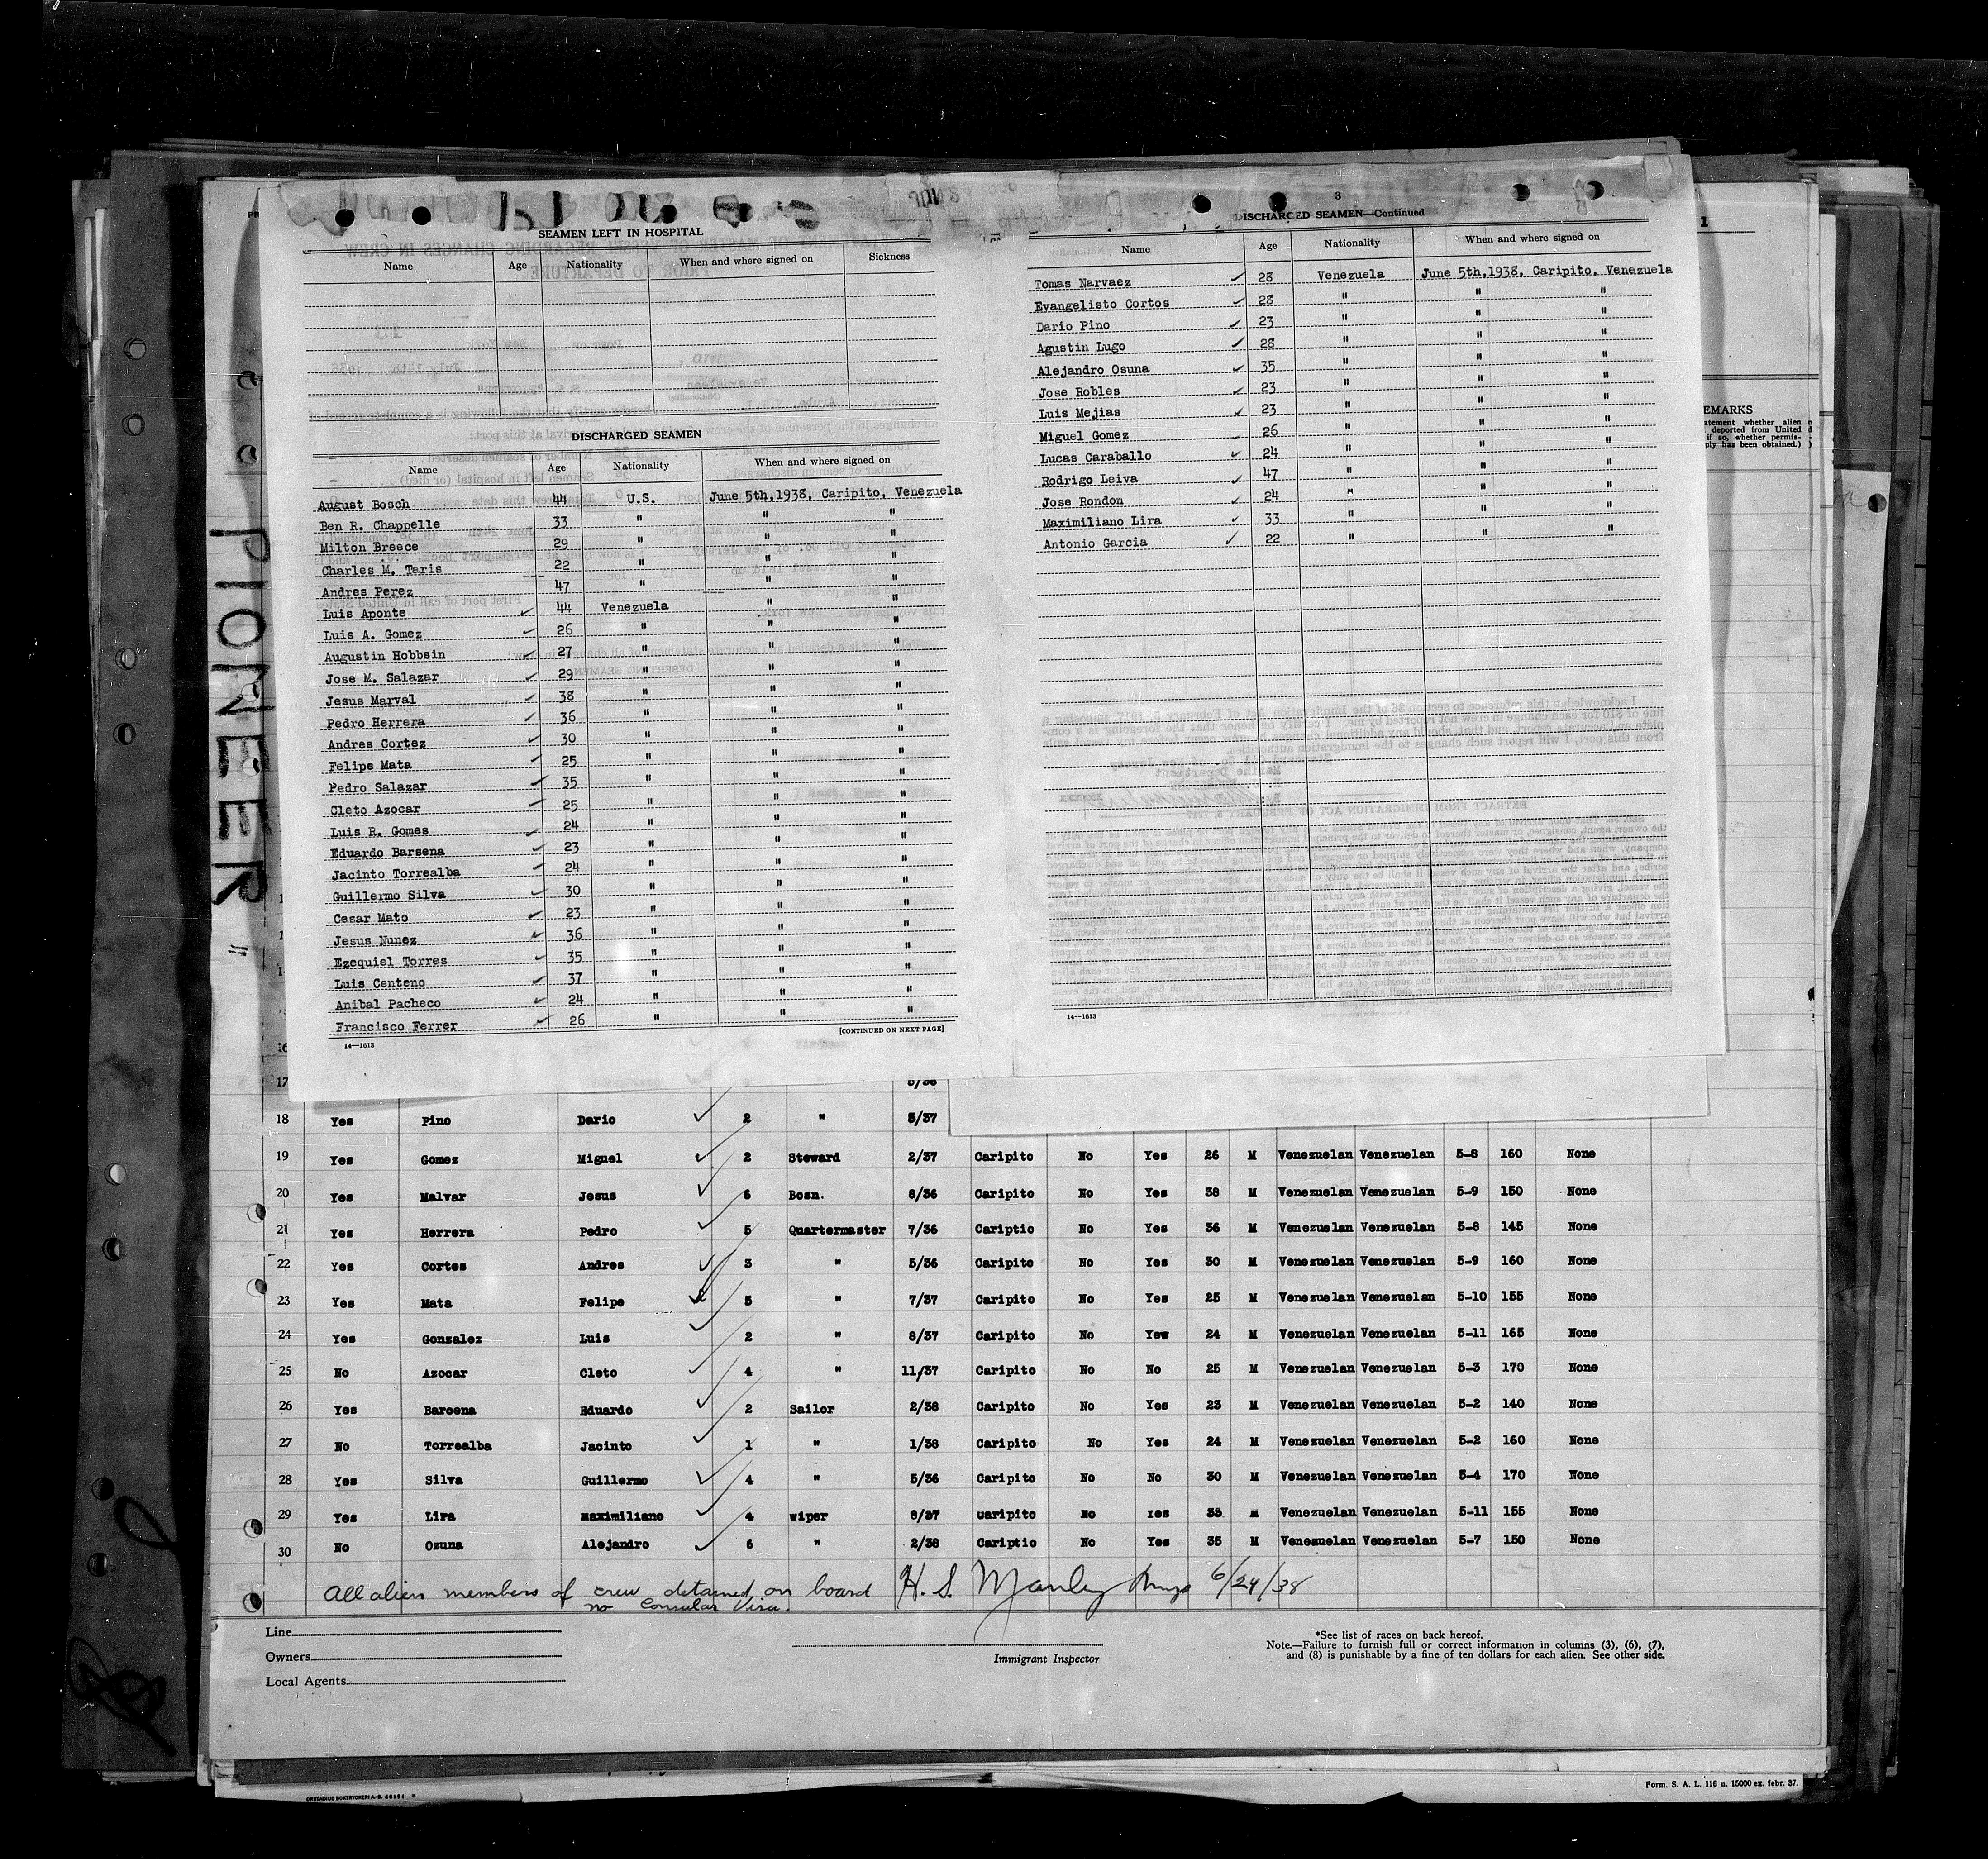 SEAMEN LEFT IN HOSPITAL
Name Age Nationality When and where signed on Sickness
DISCHARGED SEAMEN
Name Age Nationality When and where signed on
August Bosch 44 U.S. June 5th,1938, Caripito, Venezuela
Ben R. Chappelle 33 " " "
Milton Breece 29 " " "
Charles M. Taris 22 " " "
Andres Perez 47 " " "
Luis Aponte 44 Venezuela " "
Luis A. Gomez 26 " " "
Augustin Hobbsin 27 " " "
Jose M. Salazar 29 " " "
Jesus Marval 38 " " "
Pedro Herrera 36 " " "
Andres Cortez 30 " " "
Felipe Mata 25 " " "
Pedro Salazar 35 " " "
Cleto Azocar 25 " " "
Luis R. Gomes 24 " " "
Eduardo Barsena 23 " " "
Jacinto Torrealba 24 " " "
Guillermo Silva 30 " " "
Cesar Mato 23 " " "
Jesus Nunez 36 " " "
Ezequiel Torres 35 " " "
Luis Centeno 37 " " "
Anibal Pacheco 24 " " "
Francisco Ferrer 26 " " "
[CONTINUED ON NEXT PAGE]
14—1613
3
DISCHARGED SEAMEN—Continued
Name Age Nationality When and where signed on
Tomas Narvaez 28 Venezuela June 5th,1938, Caripito, Venezuela
Evangelisto Cortos 28 " " "
Dario Pino 23 " " "
Agustin Lugo 28 " " "
Alejandro Osuna 35 " " "
Jose Robles 23 " " "
Luis Mejias 23 " " "
Miguel Gomez 26 " " "
Lucas Caraballo 24 " " "
Rodrigo Leiva 47 " " "
Jose Rondon 24 " " "
Maximiliano Lira 33 " " "
Antonio Garcia 22 " " "
14—1613
1
EMARKS
PIONEER "
16
17
18 Yes Pino Dario 2 " 5/37
19 Yes Gomez Miguel 2 Steward 2/37 Caripito No Yes 26 M Venezuelan Venezuelan 5-8 160 None
20 Yes Malvar Jesus 6 Bosn. 8/36 Caripito No Yes 38 M Venezuelan Venezuelan 5-9 150 None
21 Yes Herrera Pedro 5 Quartermaster 7/36 Cariptio No Yes 36 M Venezuelan Venezuelan 5-8 145 None
22 Yes Cortes Andres 3 " 5/36 Caripito No Yes 30 M Venezuelan Venezuelan 5-9 160 None
23 Yes Mata Felipe 5 " 7/37 Caripito No Yes 25 M Venezuelan Venezuelan 5-10 155 None
24 Yes Gonzalez Luis 2 " 8/37 Caripito No Yes 24 M Venezuelan Venezuelan 5-11 165 None
25 No Azocar Cleto 4 " 11/37 Caripito No No 25 M Venezuelan Venezuelan 5-3 170 None
26 Yes Barcena Eduardo 2 Sailor 2/38 Caripito No Yes 23 M Venezuelan Venezuelan 5-2 140 None
27 No Torrealba Jacinto 1 " 1/38 Caripito No Yes 24 M Venezuelan Venezuelan 5-2 160 None
28 Yes Silva Guillermo 4 " 5/36 Caripito No No 30 M Venezuelan Venezuelan 5-4 170 None
29 Yes Lira Maximiliano 4 wiper 8/37 caripito No Yes 33 M Venezuelan Venezuelan 5-11 155 None
30 No Ozuna Alejandro 6 " 2/38 Cariptio No Yes 35 M Venezuelan Venezuelan 5-7 150 None
All alien members of crew detained on board H. S. Manley 6/24/38
no Consular Visa.
Line
Owners
Local Agents
Immigrant Inspector
*See list of races on back hereof.
Note.—Failure to furnish full or correct information in columns (3), (6), (7),
and (8) is punishable by a fine of ten dollars for each alien. See other side.
Form. S. A. L. 116 n. 15000 ex. febr. 37.